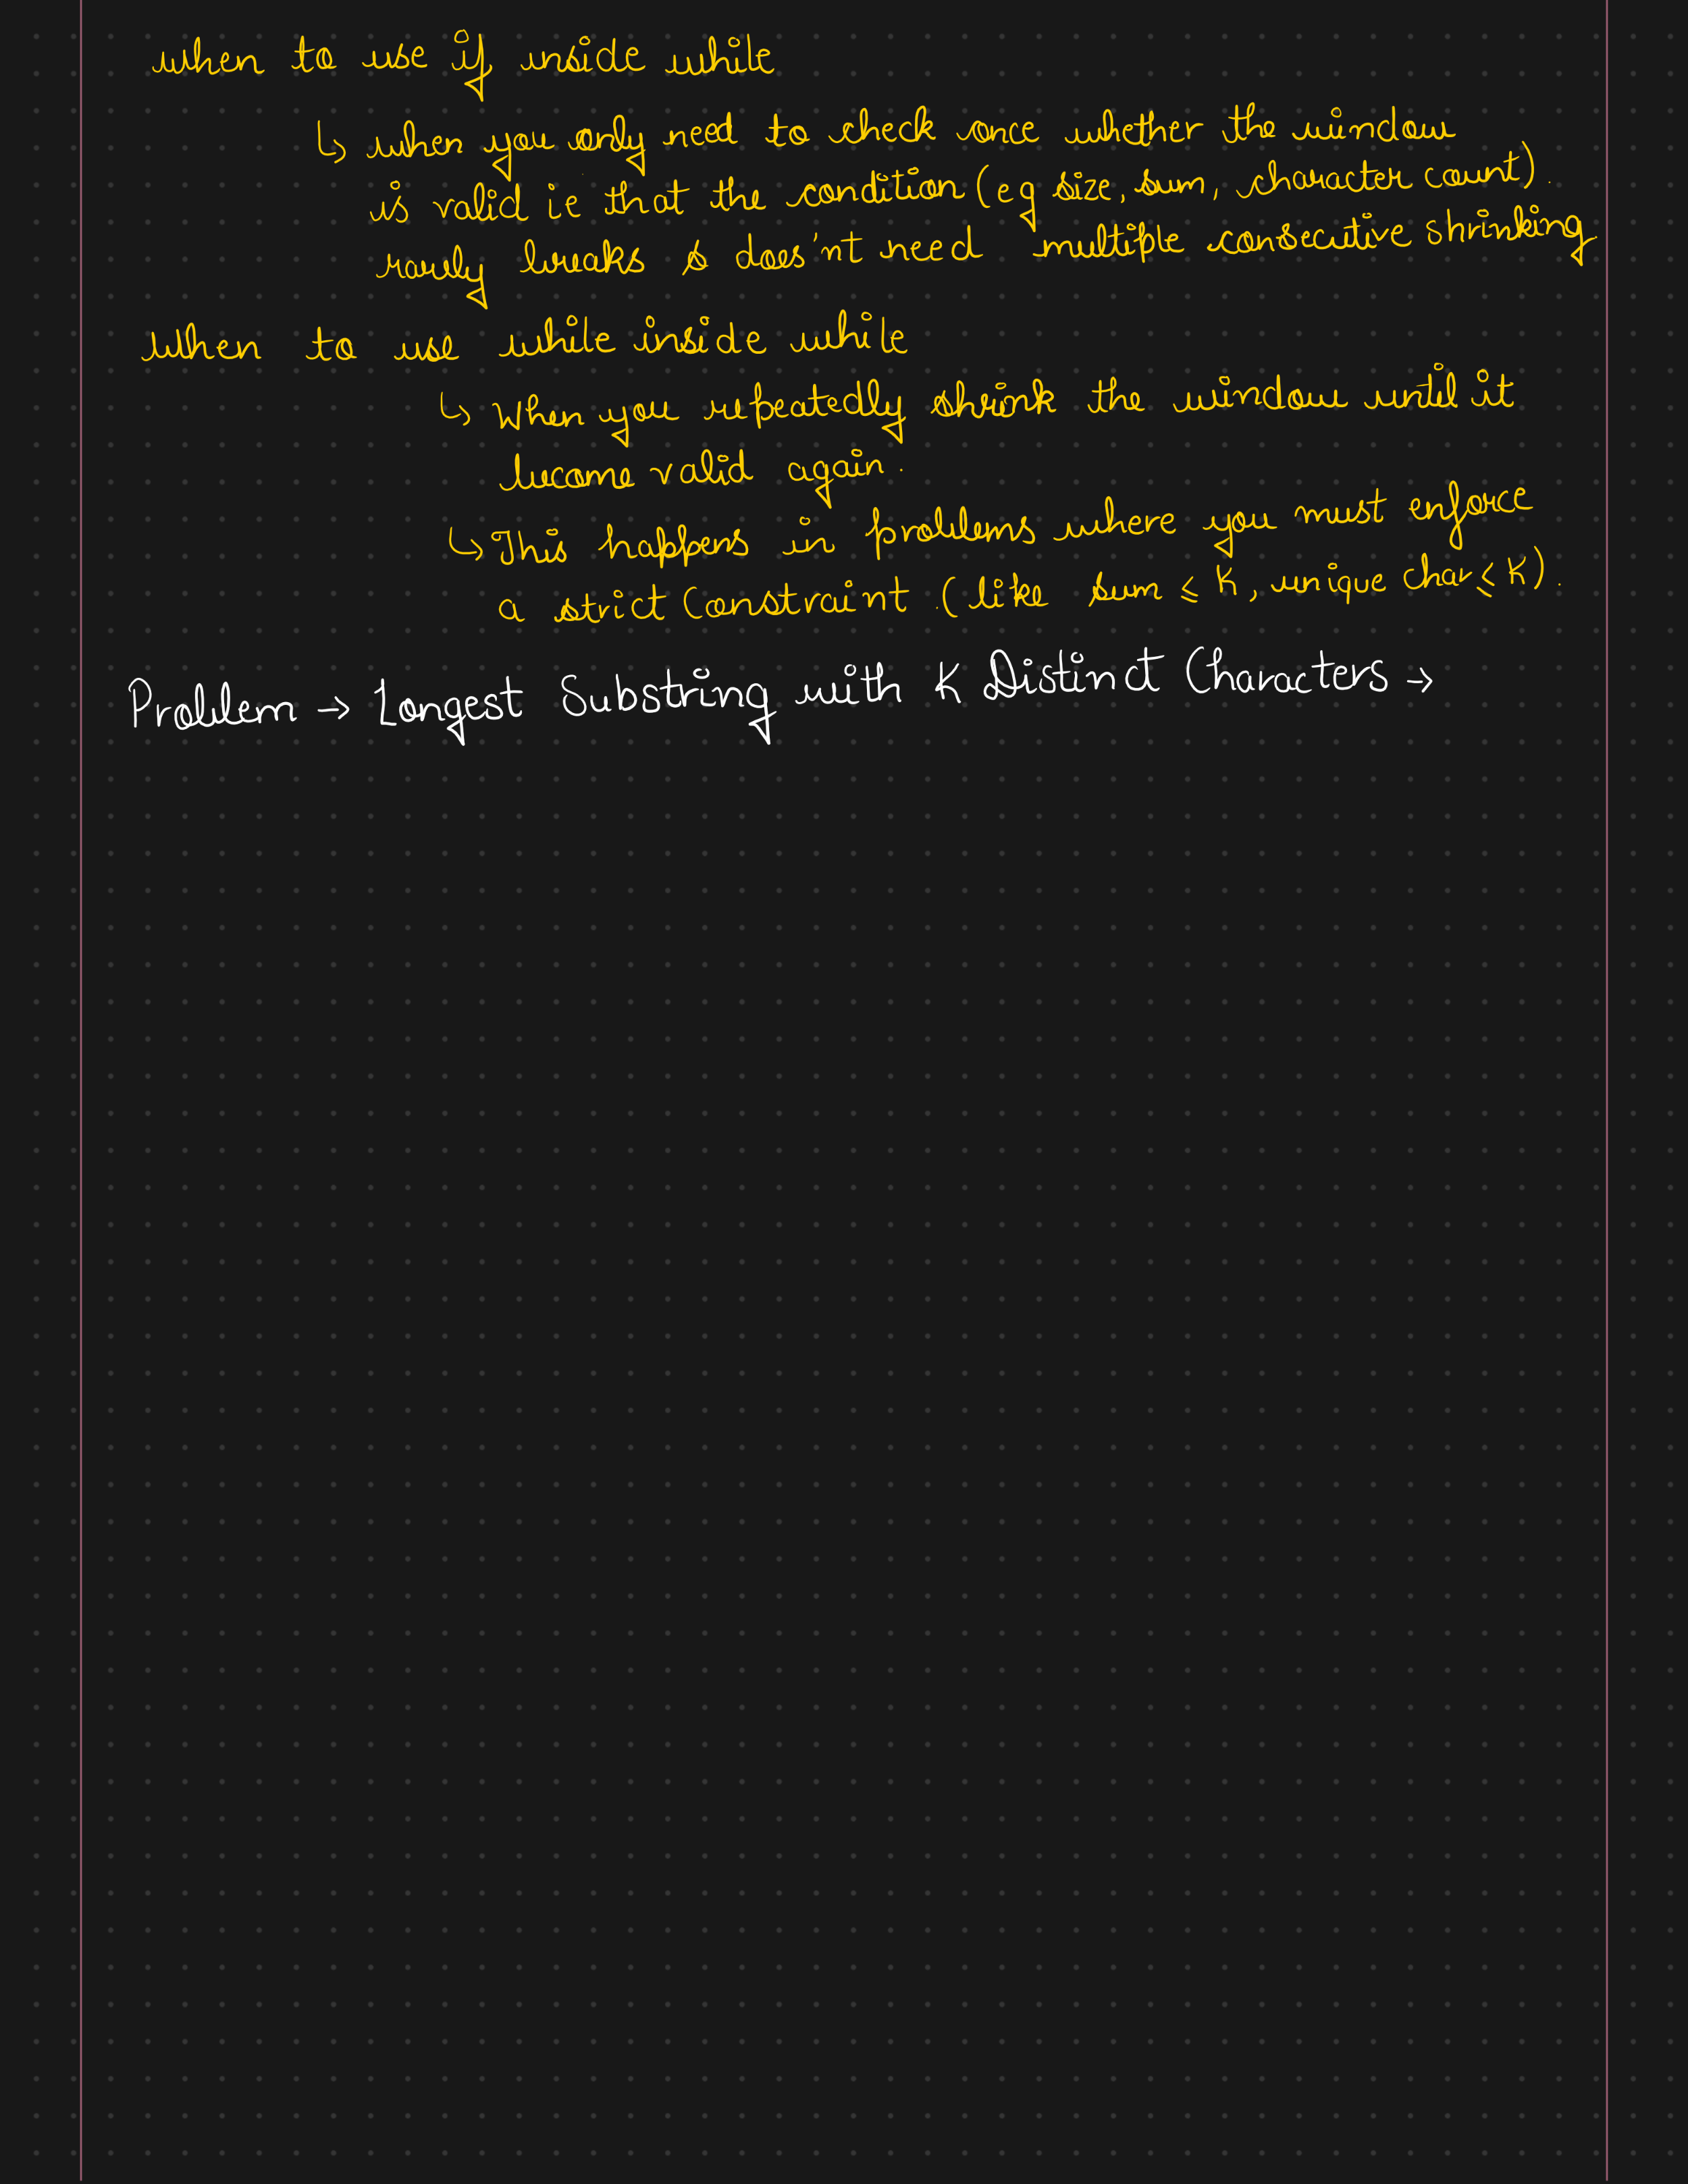 when to use if inside while
↳ when you only need to check once whether the window
is valid ie that the condition (eg size, sum, character count).
rarely breaks & does'nt need multiple consecutive shrinking
When to use while inside while
↳ When you repeatedly shrink the window until it
become valid again.
↳ This happens in problems where you must enforce
a strict constraint (like sum ≤ K, unique char ≤ K).
Problem → Longest Substring with K Distinct Characters →